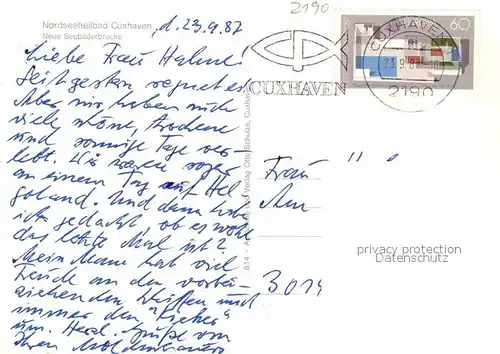 Nordseeheilbad Cuxhaven, d. 23.9.87
Neue Seebäderbrücke
Liebe Frau Hahne!
Seit gestern regnet es.
Aber wir haben auch
viele schöne, trockene
und sonnige Tage ver-
lebt. Wir waren sogar
an einem Tag auf Hel-
goland. Und dann habe
ich gedacht, ob es wohl
das letzte Mal ist?
Mein Mann hat viel
Freude an den vorbei-
ziehenden Schiffen und
immer den
um. Herzl. Grüße von
Ihren
814 – Verlag Otto Schulze, Cuxhaven
2190
CUXHAVEN
60
CUXHAVEN
23.9.
2190
Frau " "
Am
3014
privacy protection
Datenschutz